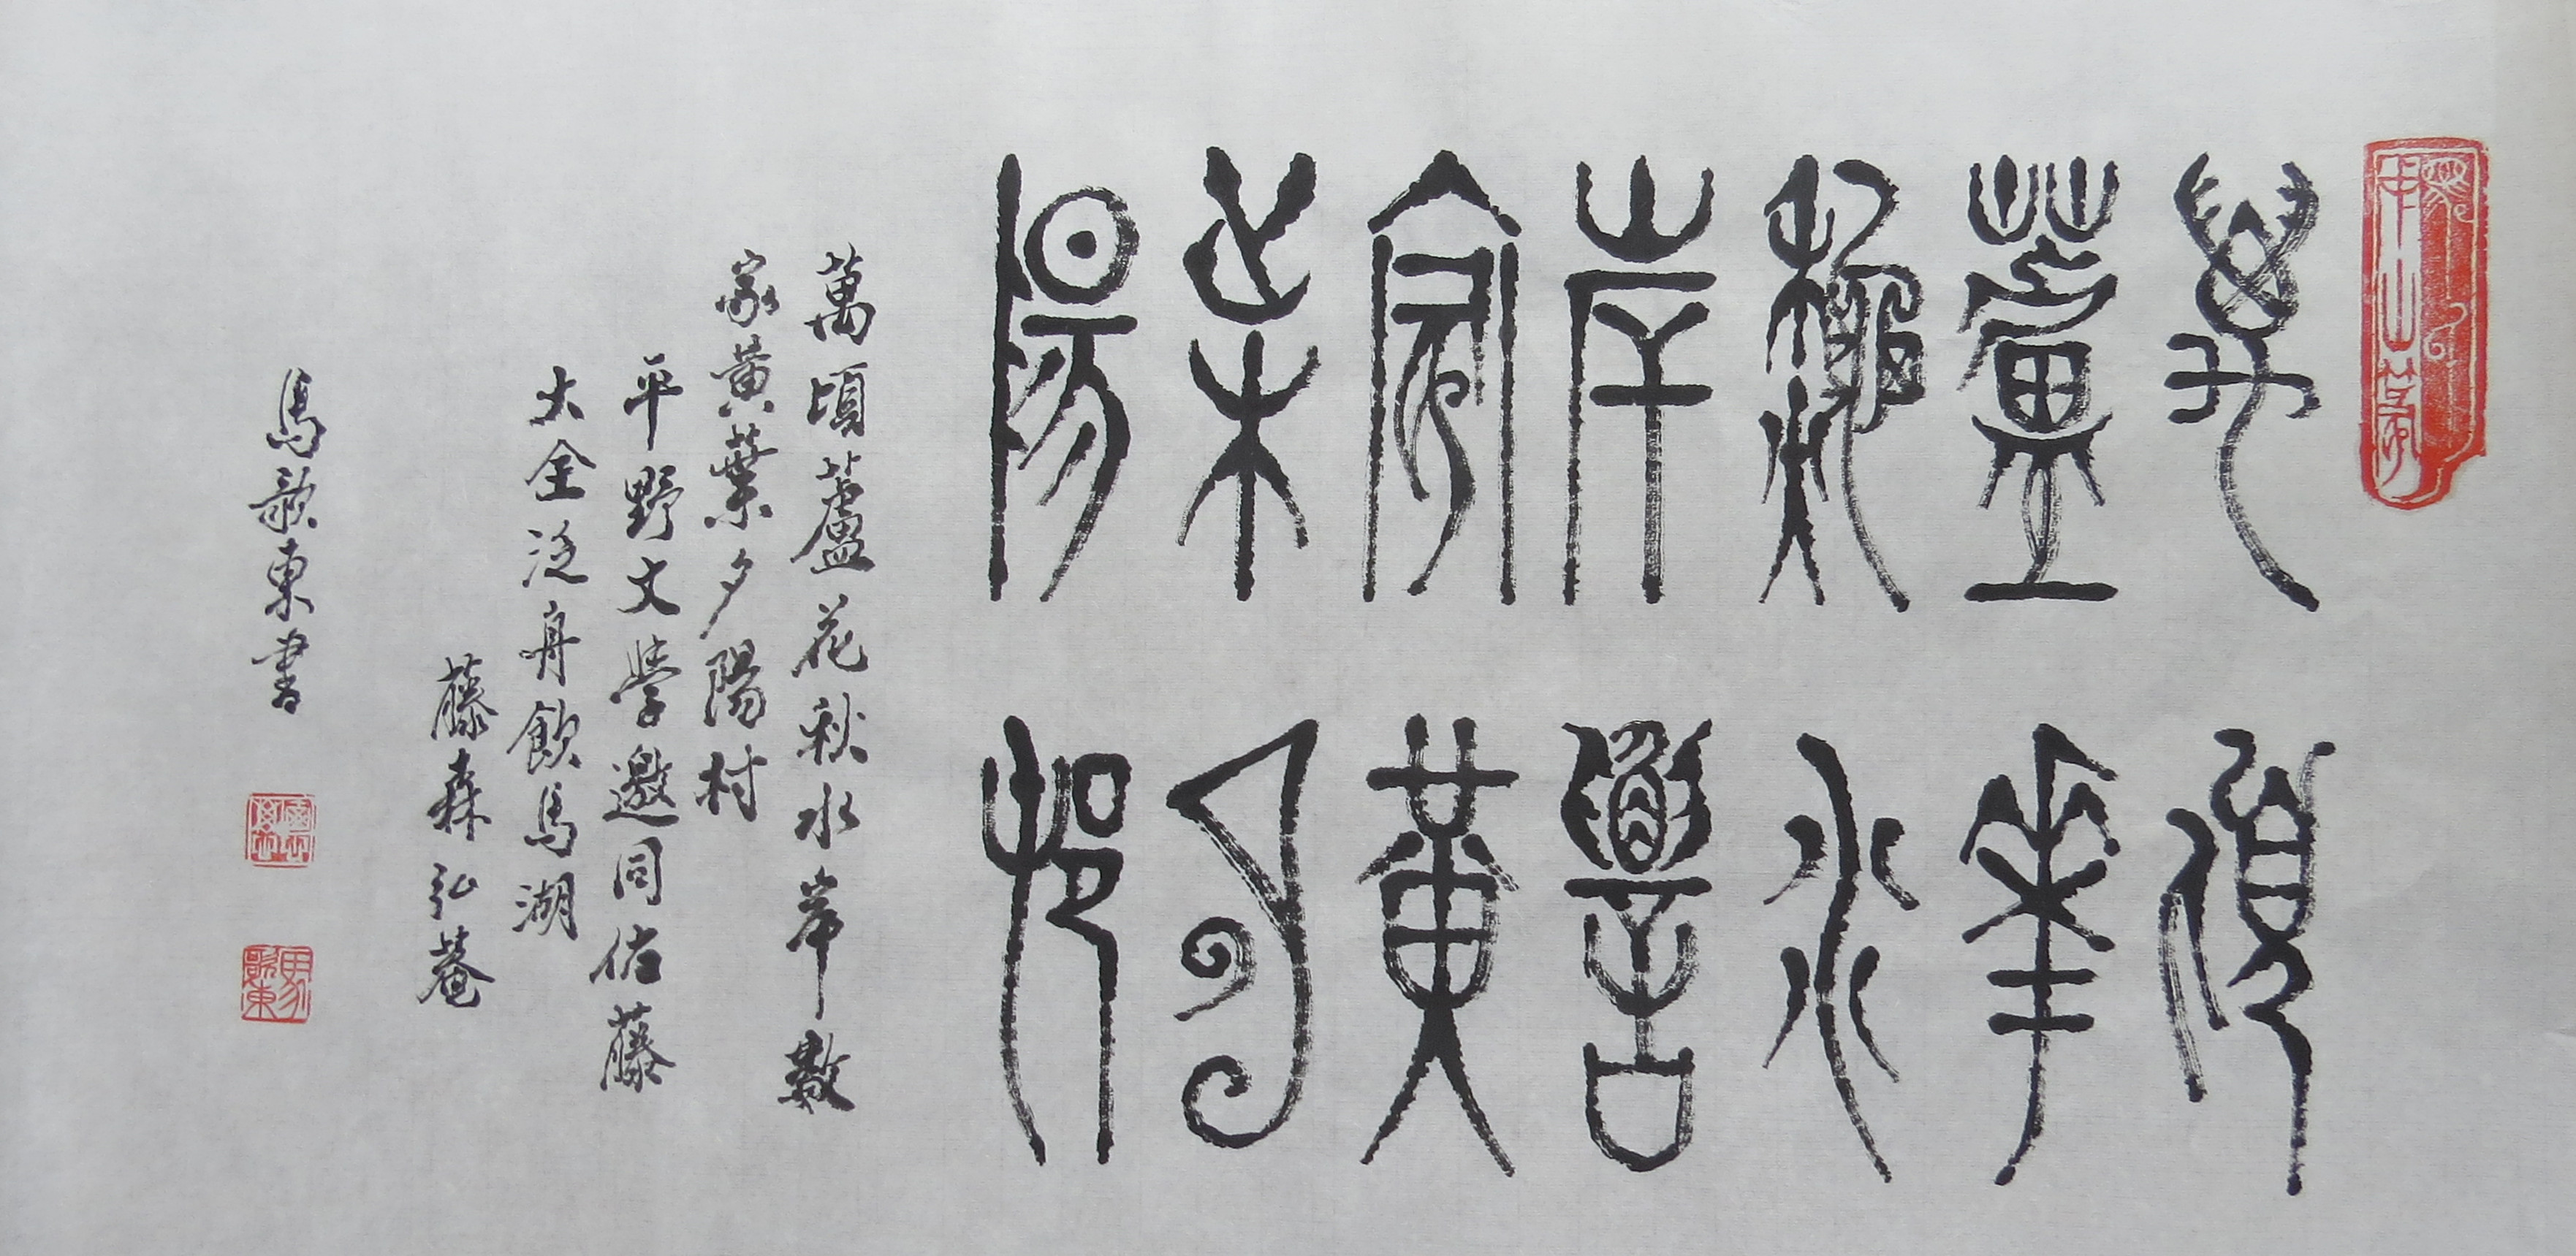 萬頃
蘆花
秋水
岸數
家黃
葉夕
陽村
萬頃蘆花秋水岸數
家黃葉夕陽村
平野文學邀同佐藤
大全泛舟飲馬湖
藤森弘菴
馬歌東書
馬歌東